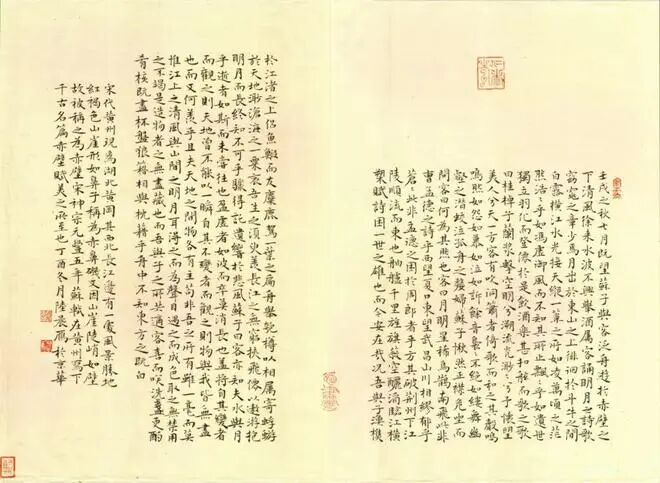 壬戌之秋七月既望蘇子與客泛舟遊於赤壁之
下清風徐来水波不興舉酒属客誦明月之詩歌
窈窕之章少焉月出於東山之上徘徊於斗牛之間
白露橫江水光接天縱一葦之所如凌萬頃之茫
然浩浩乎如馮虛御風而不知其所止飄飄乎如遺世
獨立羽化而登僊於是飲酒樂甚扣舷而歌之歌
曰桂棹兮蘭槳擊空明兮溯流光渺渺兮予懷望
美人兮天一方客有吹洞簫者倚歌而和之其聲嗚
嗚然如怨如慕如泣如訴餘音裊裊不絕如縷舞幽
壑之潛蛟泣孤舟之嫠婦蘇子愀然正襟危坐而
問客曰何為其然也客曰月明星稀烏鵲南飛此非
曹孟德之詩乎西望夏口東望武昌山川相繆郁乎
蒼蒼此非孟德之困於周郎者乎方其破荆州下江
陵順流而東也舳艫千里旌旗蔽空釃酒臨江橫
槊賦詩固一世之雄也而今安在哉況吾與子漁樵
於江渚之上侣魚鰕而友麋鹿駕一葉之扁舟舉匏樽以相属寄蜉蝣
於天地渺滄海之一粟哀吾生之須臾羨長江之無窮挾飛僊以遨遊抱
明月而長終知不可乎驟得託遺響於悲風蘇子曰客亦知夫水與月
乎逝者如斯而未嘗往也盈虛者如彼而卒莫消長也蓋將自其變者
而觀之則天地曾不能以一瞬自其不變者而觀之則物與我皆無盡
也而又何羨乎且夫天地之間物各有主苟非吾之所有雖一毫而莫
惟江上之清風與山間之明月耳得之而為聲目遇之而成色取之無禁用
之不竭是造物者之無盡藏也而吾與子之所共適客喜而咲洗盞更酌
肴核既盡杯盤狼籍相與枕藉乎舟中不知東方之既白
宋代黄州現為湖北黄岡其西北長江邊有一處風景勝地
紅褐色山崖形如鼻子稱為赤鼻磯又因山崖陡峭如壁
故被稱之為赤壁宋神宗元豐五年蘇軾在黄州寫下
千古名篇赤壁賦美之所至也丁酉冬月陸於京華